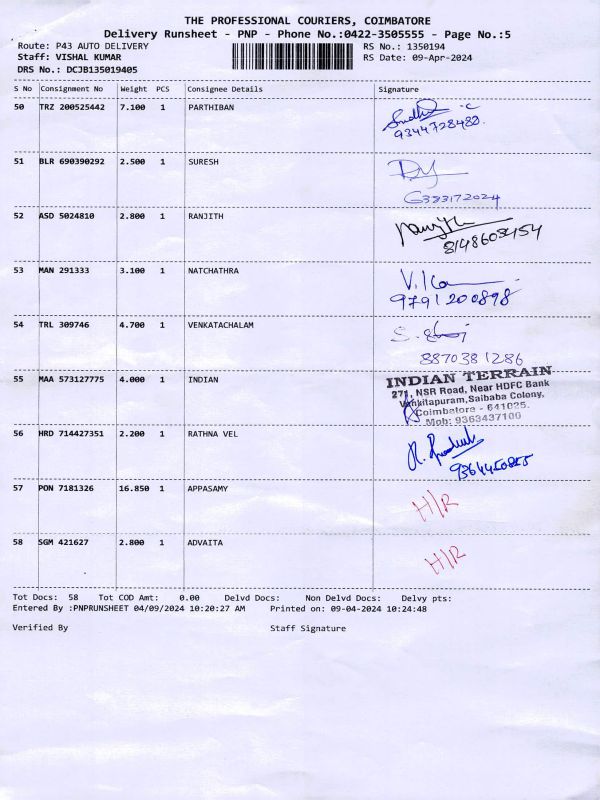 THE PROFESSIONAL COURIERS, COIMBATORE
Delivery Runsheet - PNP - Phone No.:0422-3505555 - Page No.:5
Route: P43 AUTO DELIVERY RS No.: 1350194
Staff: VISHAL KUMAR RS Date: 09-Apr-2024
DRS No.: DCJB135019405
S No Consignment No Weight PCS Consignee Details Signature
50 TRZ 200525442 7.100 1 PARTHIBAN
9344728480.
51 BLR 690390292 2.500 1 SURESH
6383172024
52 ASD 5024810 2.800 1 RANJITH Ranjith
8148603454
53 MAN 291333 3.100 1 NATCHATHRA
9791200898
54 TRL 309746 4.700 1 VENKATACHALAM
8870381286
55 MAA 573127775 4.000 1 INDIAN INDIAN TERRAIN
271, NSR Road, Near HDFC Bank
Venkitapuram,Saibaba Colony,
Coimbatore - 641025.
Mob: 9363437100
56 HRD 714427351 2.200 1 RATHNA VEL
57 PON 7181326 16.850 1 APPASAMY H/R
58 SGM 421627 2.800 1 ADVAITA H/R
Tot Docs: 58 Tot COD Amt: 0.00 Delvd Docs: Non Delvd Docs: Delvy pts:
Entered By :PNPRUNSHEET 04/09/2024 10:20:27 AM Printed on: 09-04-2024 10:24:48
Verified By Staff Signature